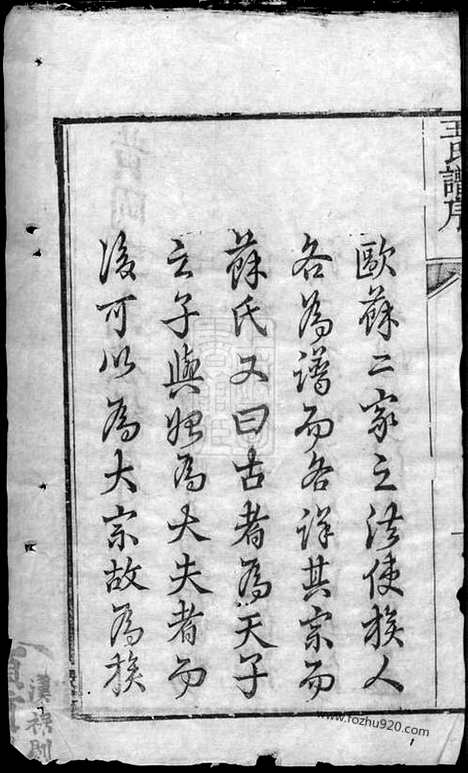 王氏譜序
歐蘇二家立法使族人
各為譜而各詳其宗而
蘇氏又曰古者為天子
之子與始為大夫者而
後可以為大宗故為族
www.fozhu920.com